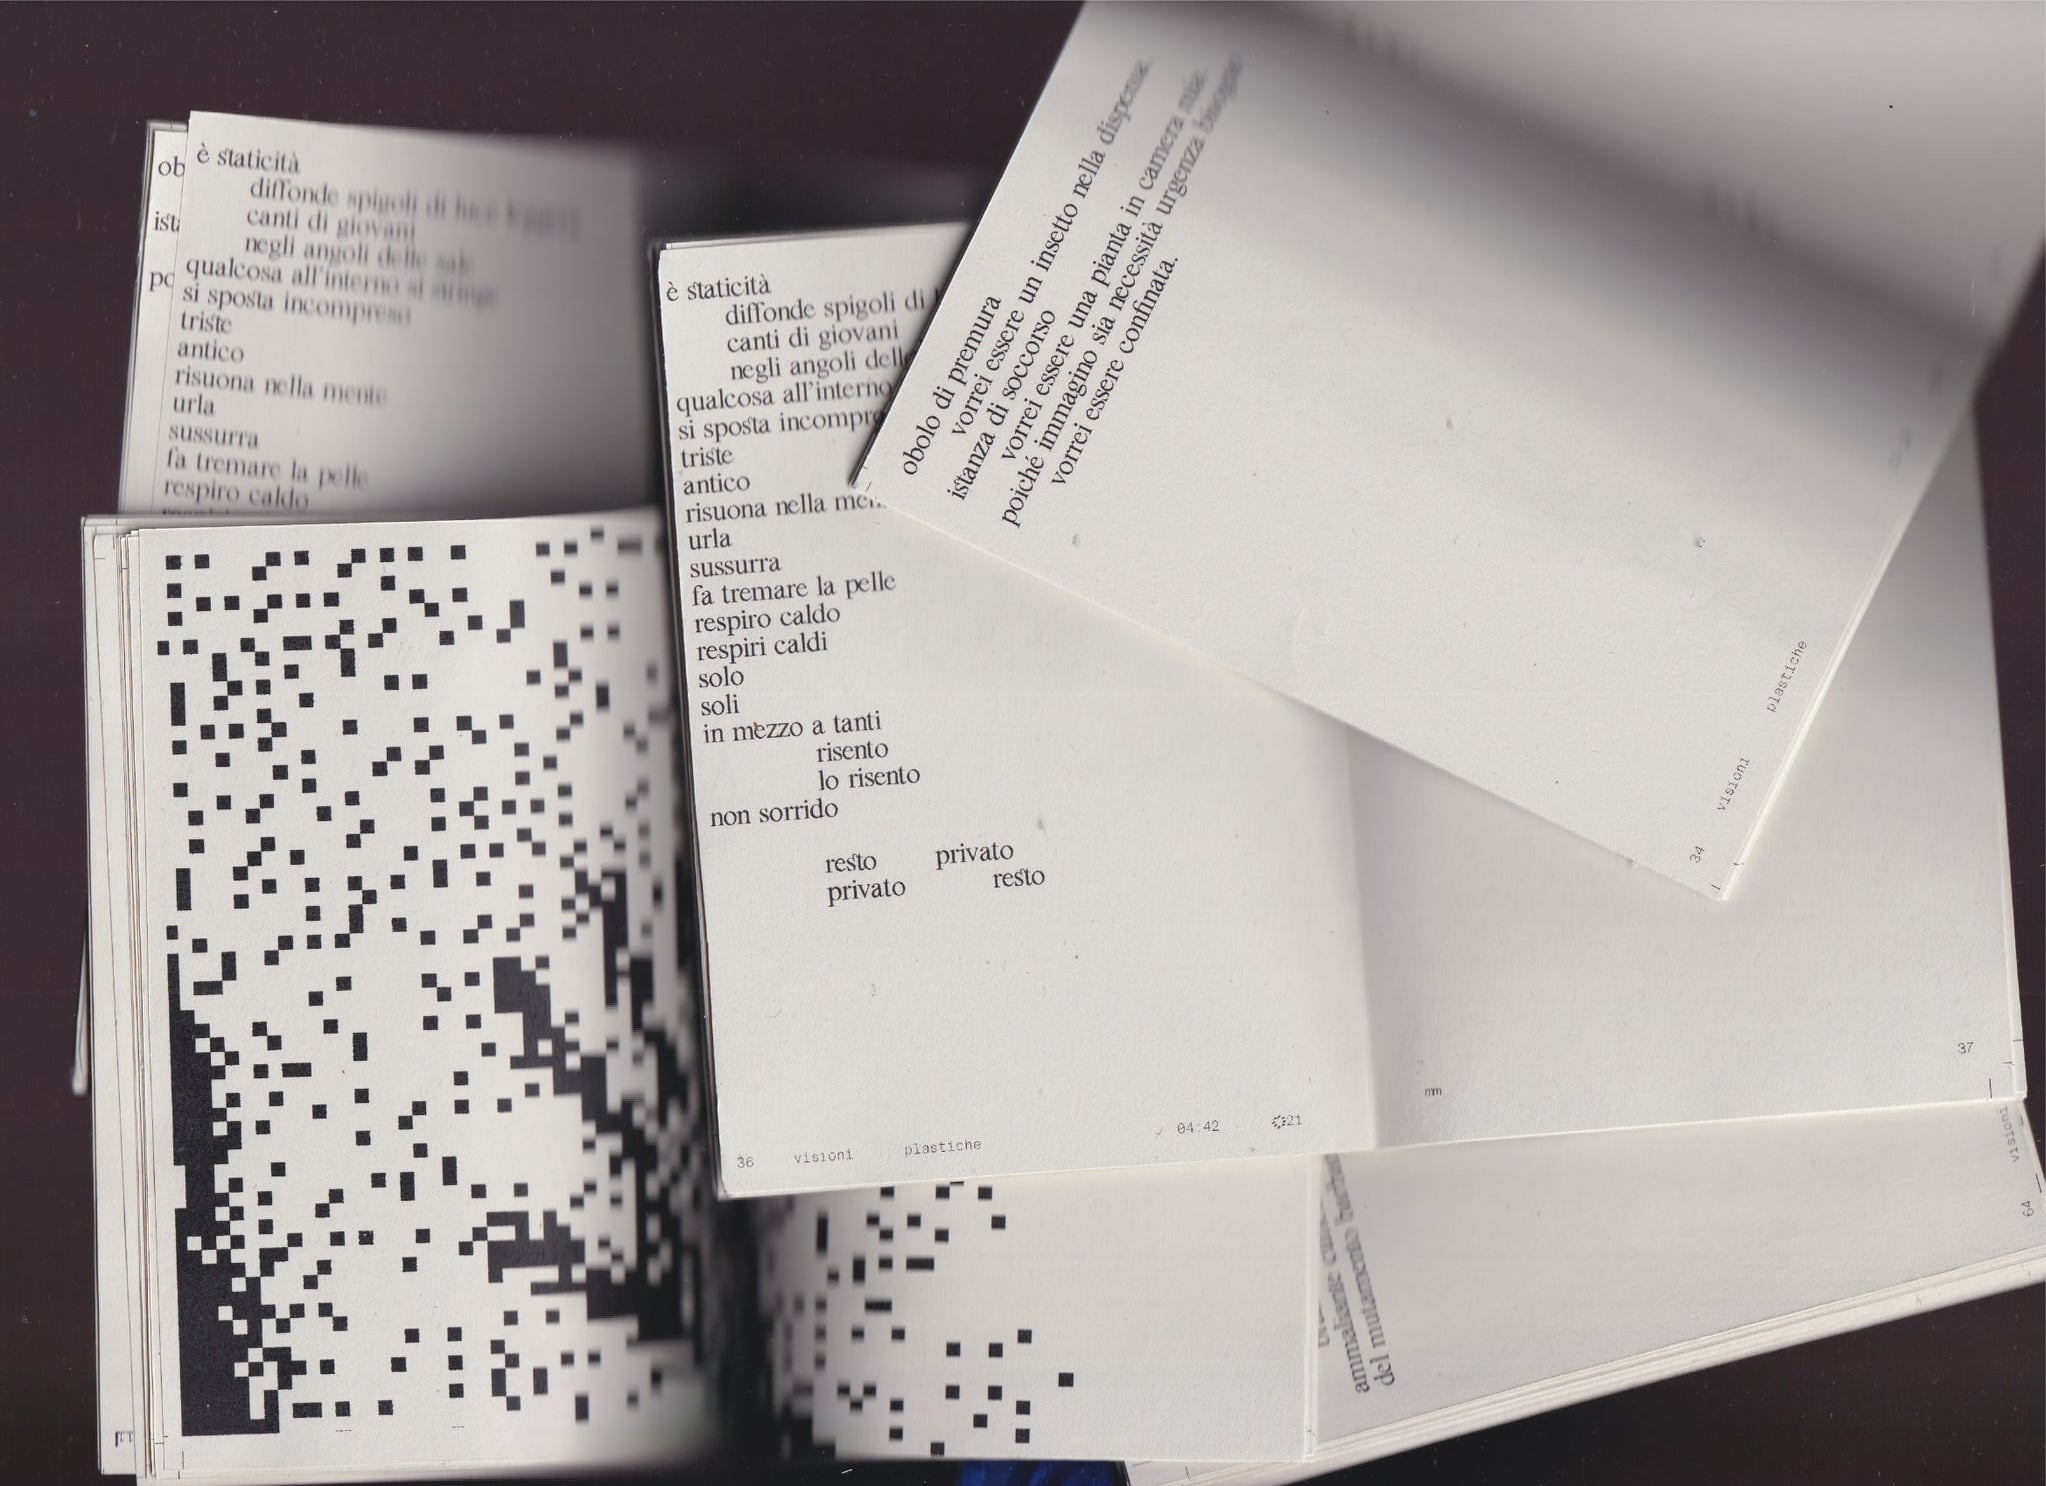 ob
ist
po
è staticità
diffonde spigoli di luce
canti di giovani
negli angoli delle sale
qualcosa all'interno si stringe
si sposta incompreso
triste
antico
risuona nella mente
urla
sussurra
fa tremare la pelle
respiro caldo
è staticità
diffonde spigoli di
canti di giovani
negli angoli delle
qualcosa all'interno
si sposta incompre
triste
antico
risuona nella men
urla
sussurra
fa tremare la pelle
respiro caldo
respiri caldi
solo
soli
in mezzo a tanti
risento
lo risento
non sorrido
resto privato
privato resto
36 visioni plastiche 04:42 21
obolo di premura
vorrei essere un insetto nella dispensa.
istanza di soccorso
vorrei essere una pianta in camera mia.
poiché immagino sia necessità urgenza bisogno
vorrei essere confinata.
34 visioni plastiche
mm
37
ammaliante
del mutamento
64 visioni